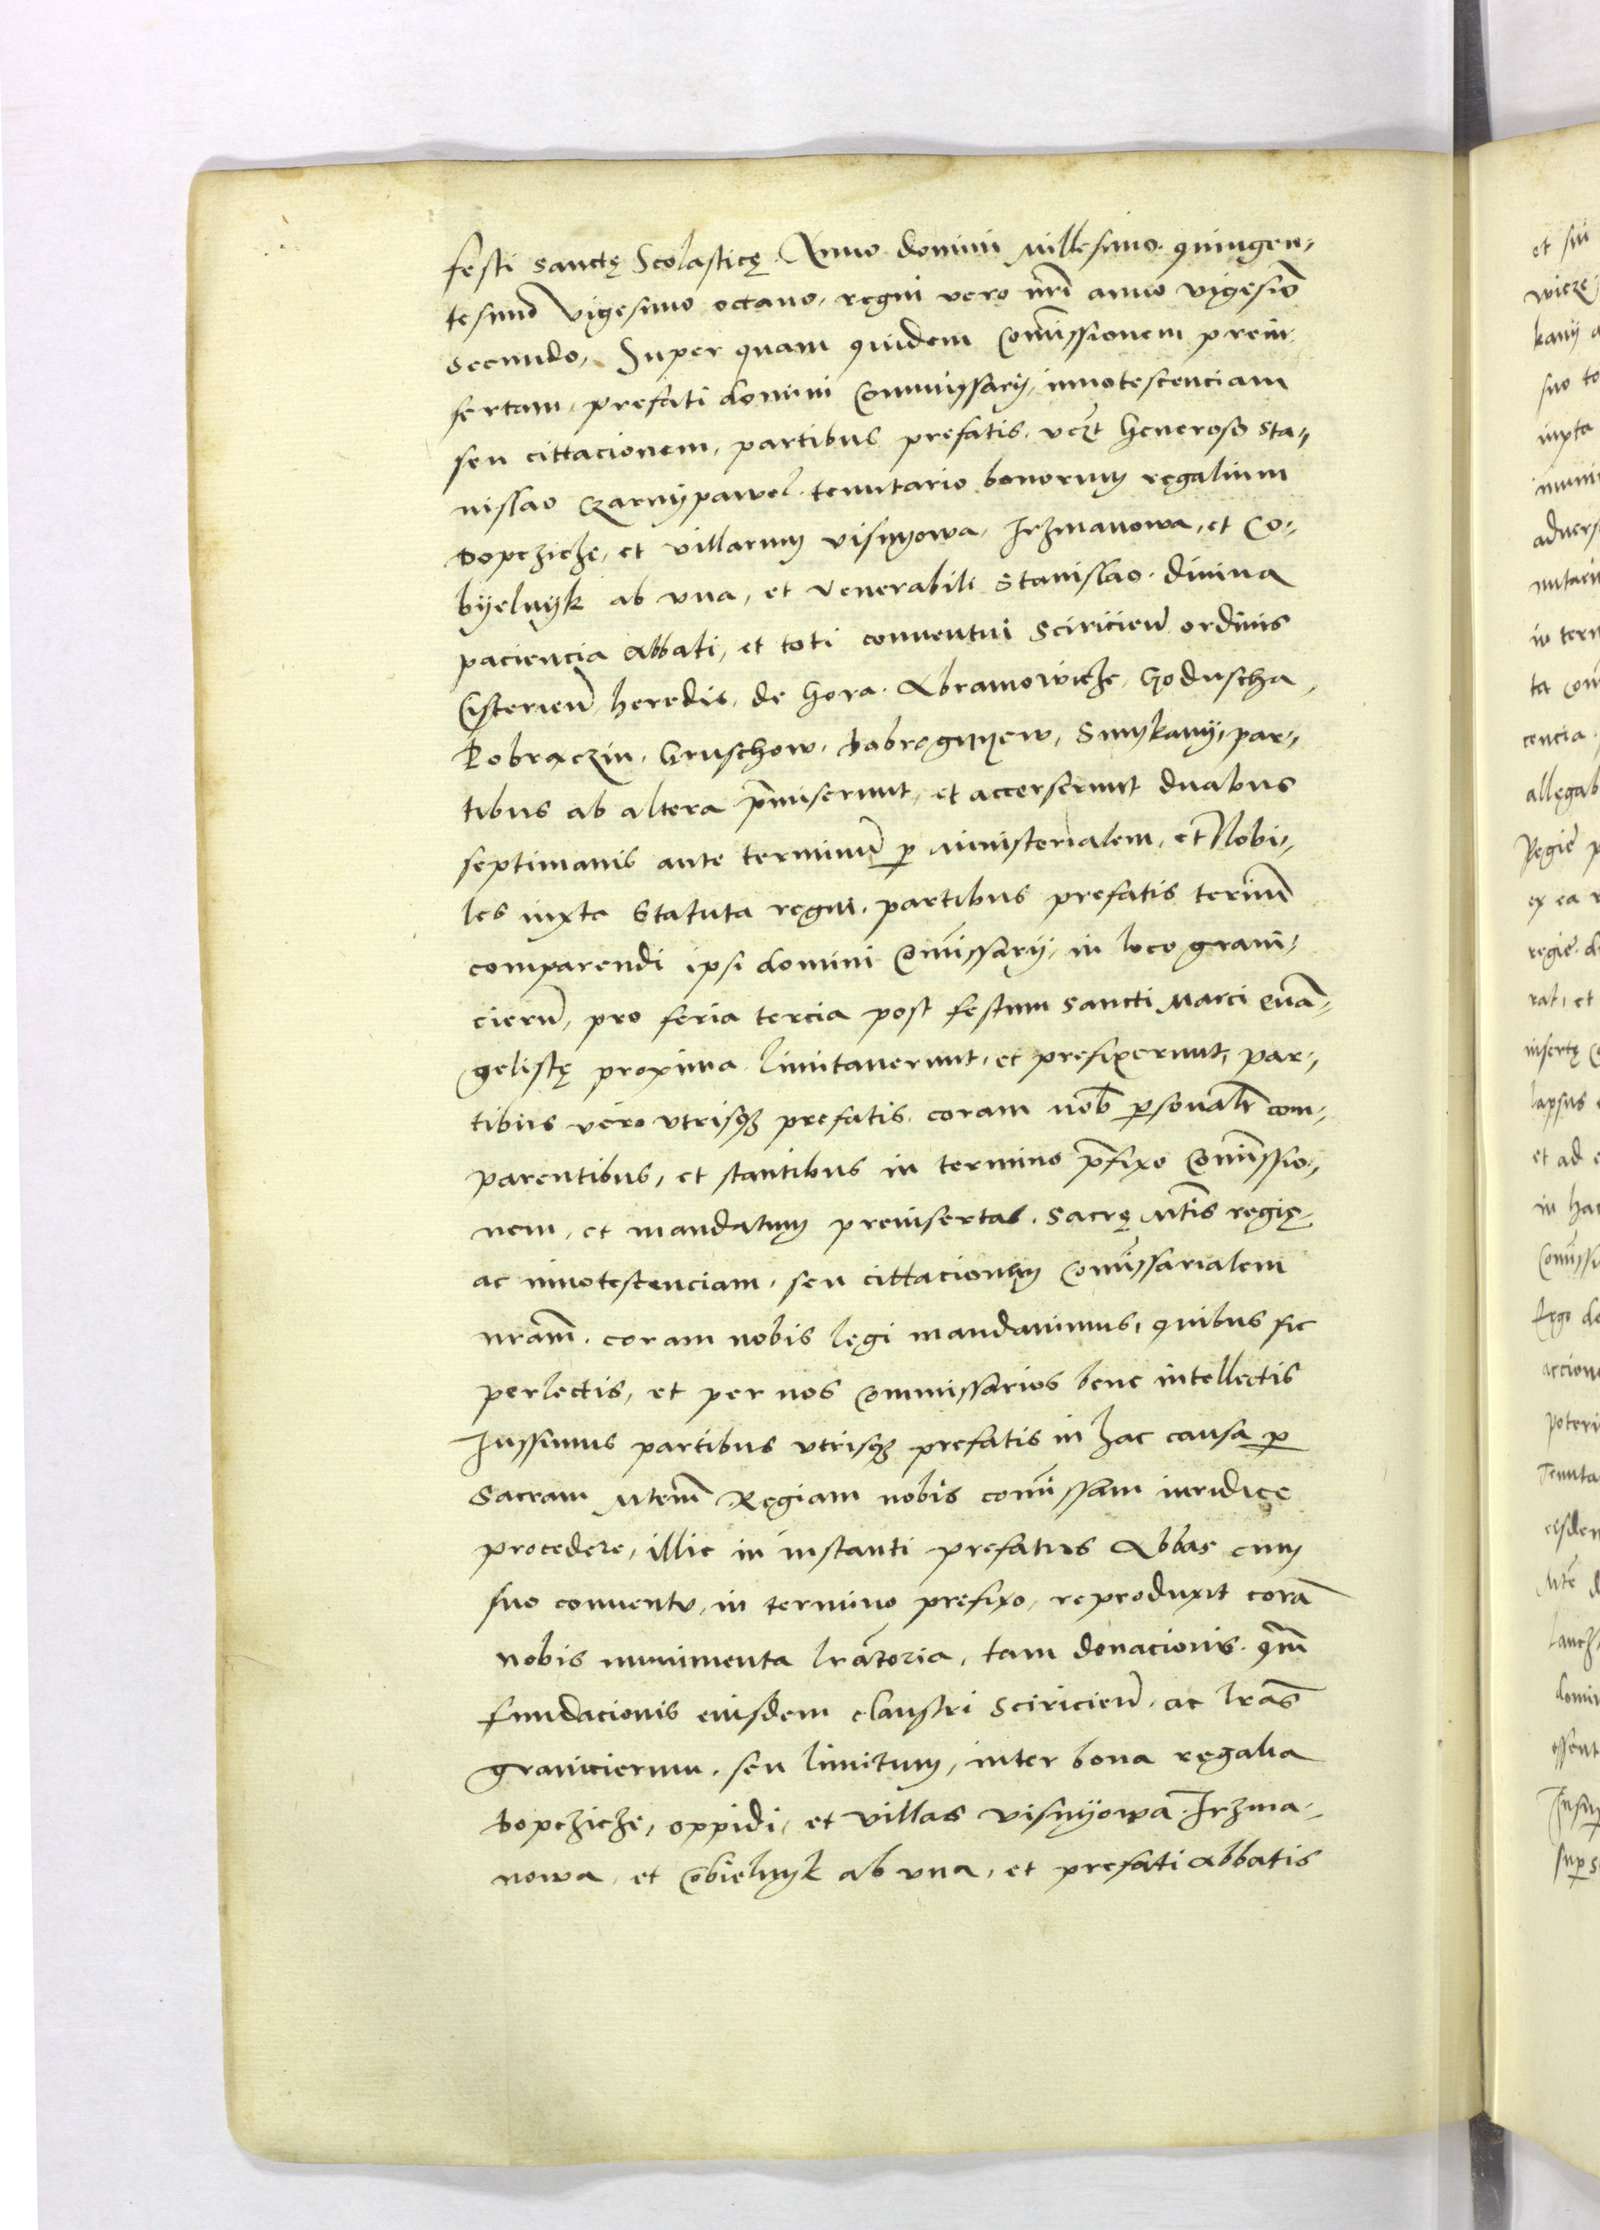 festi sanctę Scolasticę. Anno domini Millesimo quingen-
tesimo Vigesimo octavo, regni vero nr̃i anno vigesiō
secundo, Super quam quidem Com̃issionem prein
sertam, prefati domini Commissarij, innotescenciam
seu cittacionem, partibus prefatis, vczt Generoso Sta-
nislao Czarnypawel tenutario bonorum regalium
Dopczicze, et villarum Visnyowa, Irzmanowa, et Co-
byelnyk ab vna, et Venerabili Stanislao divina
paciencia Abbati, et toti conventui Sciricien̄ ordinis
Cistercien̄ heredis, de Gora Abramowicze, Goduscha,
Pobraczin, Gruschow, Dabrognyew, Smykany, par-
tibus ab altera p̄miserunt, et accerserunt duabus
septimanis ante terminū ꝑ Ministerialem, et Nobi-
les iuxta Statuta regni, partibus prefatis termiū
comparendi ipsi domini Com̃issarij, in loco grani-
cierū, pro feria tercia post festum Sancti Marci Evā-
gelistę proxima limitaverunt, et prefixerunt, par-
tibus vero vtrisqꝫ prefatis coram nob̄ ꝑsonalr̄ com-
parentibus, et stantibus in termino p̄fixo Com̃issio-
nem, et mandatum preinsertas, Sacrę Mt̄is regię
ac innotescenciam, seu cittacionem Com̃issarialem
nram̄ coram nobis legi mandavimus, quibus sic
perlectis, et per nos Commissarios bene intellectis
Iussimus partibus vtrisqꝫ prefatis in hac causa ꝑ
Sacram Mtem̄ Regiam nobis com̃issam iuridice
procedere, illic in instanti prefatus Abbas cum
suo conventu, in termino prefixo, reproduxit corā
nobis munimenta lr̄atoria, tam donacionis qm̄
fundacionis eiusdem claustri Sciricien̄ ac lr̄as
granicierum, seu limitum, inter bona regalia
Dopczicze, oppidi, et villas Visnyowa, Irzma-
nowa, et Cobielnyk ab vna, et prefati Abbatis